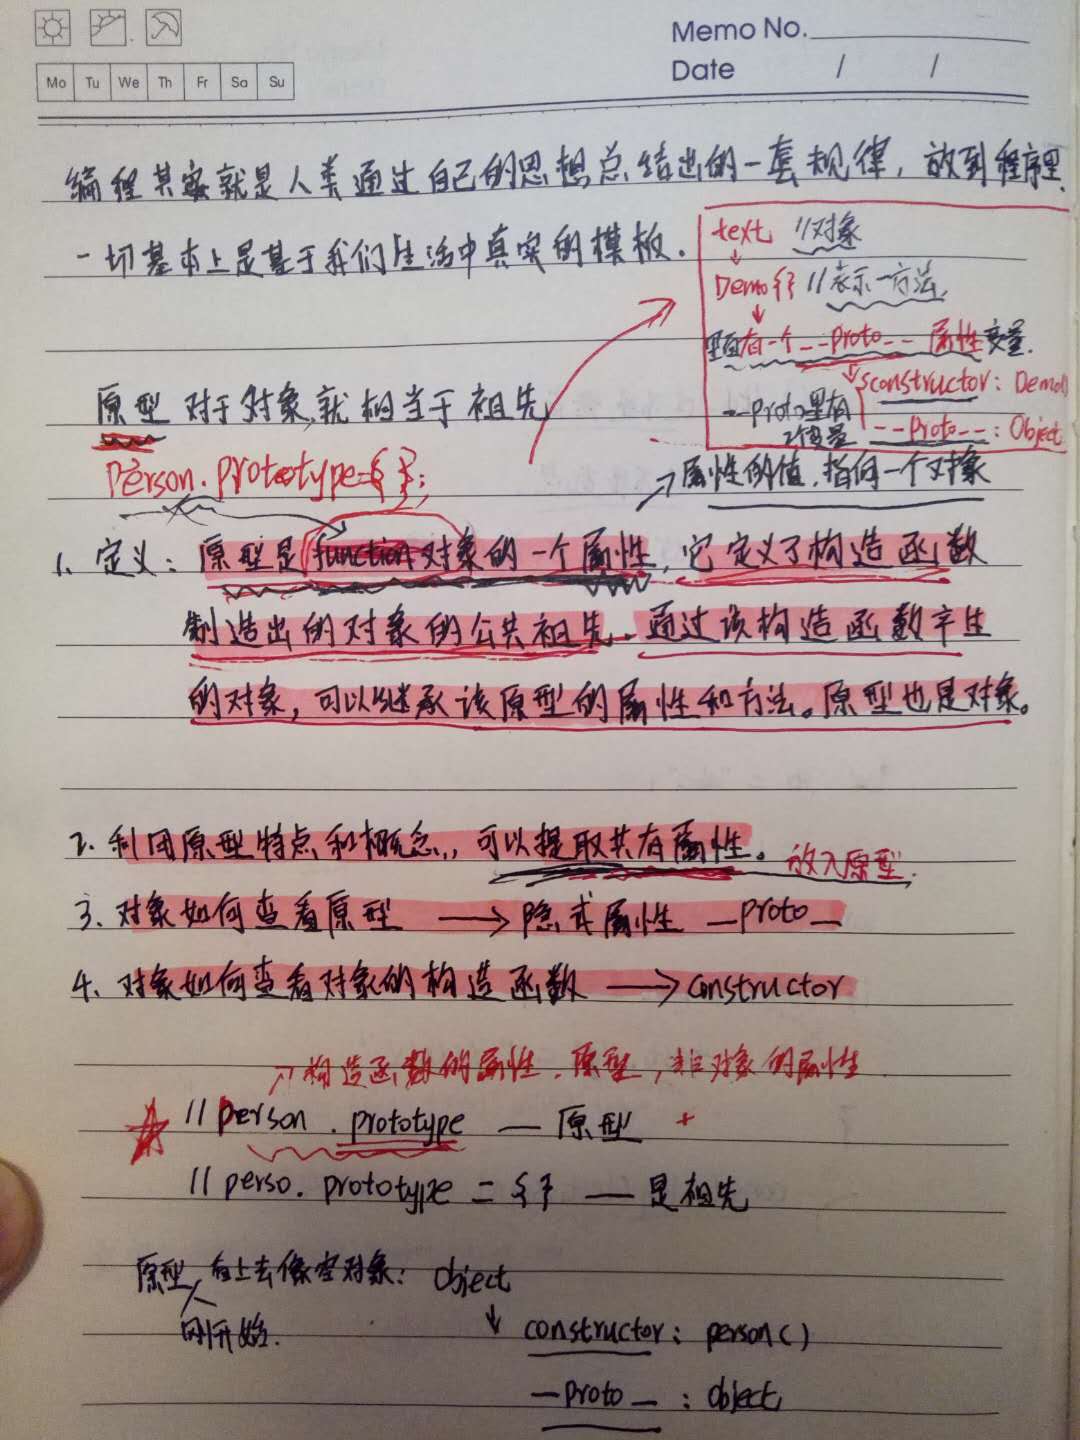 Memo No.
Mo Tu We Th Fr Sa Su
Date / /
编程其实就是人类通过自己的思想总结出的一套规律，放到程序里
一切基本上是基于我们生活中真实的模板．
text //对象
Demo{} //表示一方法
里面有一个 __proto__ 属性变量．
constructor: Demo()
__proto里有
2个变量
__proto__: Object
原型对于对象,就相当于祖先
Person.prototype={ };
属性的值．指向一个对象
1、定义：原型是function对象的一个属性，它定义了构造函数
制造出的对象的公共祖先．通过该构造函数产生
的对象，可以继承该原型的属性和方法。原型也是对象。
2、利用原型特点和概念,，可以提取共有属性。放入原型．
3、对象如何查看原型 ⟶ 隐式属性 __proto__
4、对象如何查看对象的构造函数 ⟶ constructor
构造函数的属性．原型，非对象的属性
// person . prototype — 原型
// perso. prototype = {} — 是祖先
原型 看上去像空对象： Object
刚开始．
constructor: person()
__proto__ : object